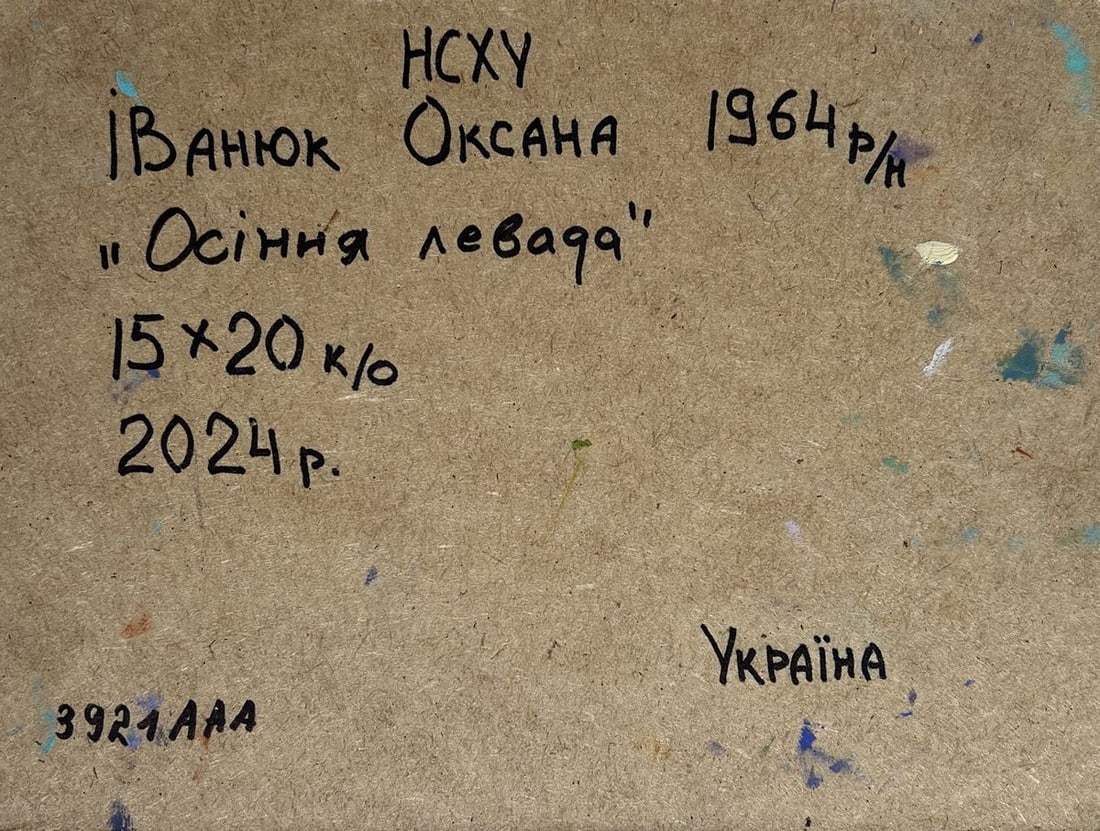 НСХУ
Іванюк Оксана 1964 р/н
"Осіння левада"
15×20 к/о
2024 р.
Україна
3921ААА